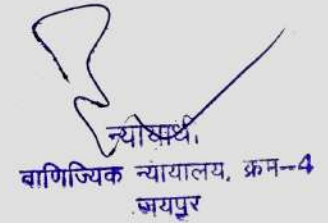 न्यायाधीश,
वाणिज्यिक न्यायालय, क्रम--4
जयपुर